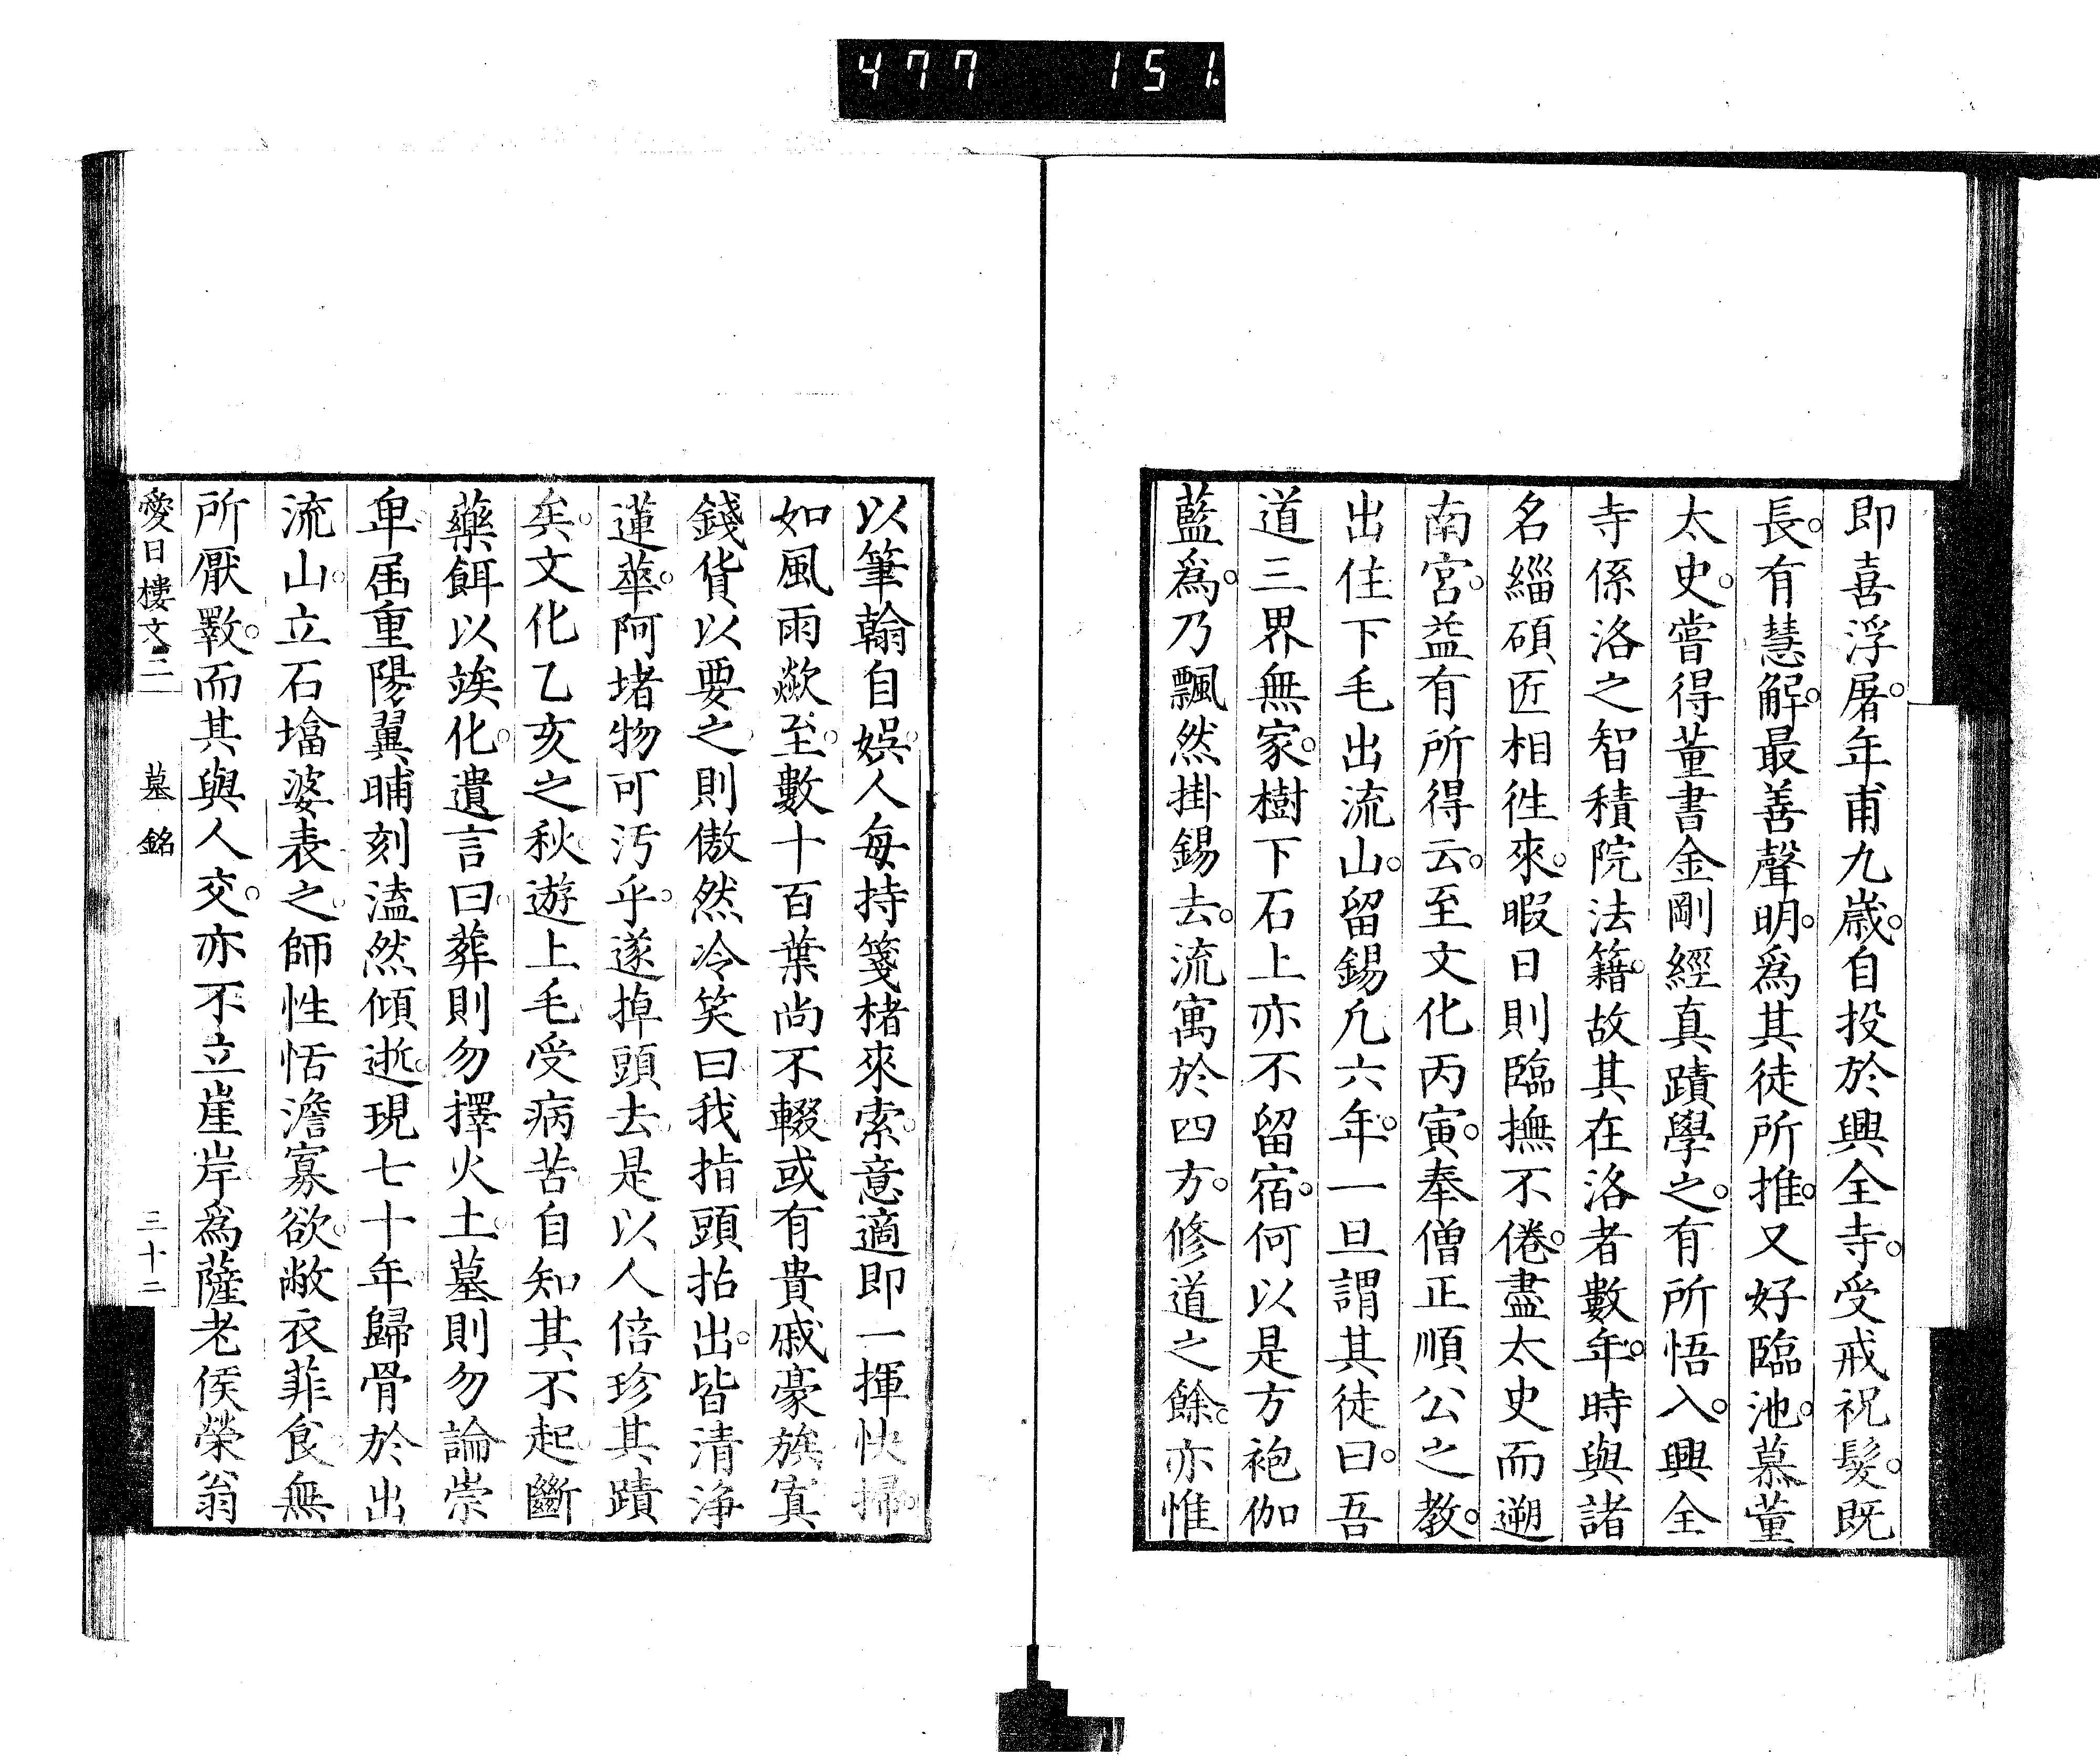 477 151
即喜浮屠。年甫九歲。自投於興全寺。受戒祝髮。既
長。有慧解。最善聲明。爲其徒所推。又好臨池。慕董
太史。嘗得董書金剛經真蹟學之。有所悟入。興全
寺係洛之智積院法籍。故其在洛者數年。時與諸
名緇碩匠相徃來。暇日則臨撫不倦。盡太史而遡
南宮。益有所得云。至文化丙寅。奉僧正順公之教。
出住下毛出流山。留錫凢六年。一旦謂其徒曰。吾
道三界無家。樹下石上亦不留宿。何以是方袍伽
藍爲。乃飄然掛錫去。流寓於四方。修道之餘。亦惟
以筆翰自娛。人每持箋楮來索。意適即一揮快掃。
如風雨歘至。數十百葉尚不輟。或有貴戚豪族寘
錢貨以要之。則傲然冷笑曰。我指頭拈出。皆清淨
蓮華。阿堵物可汚乎。遂掉頭去。是以人倍珍其蹟
矣。文化乙亥之秋。遊上毛。受病苦。自知其不起。斷
藥餌以竢化。遺言曰。葬則勿擇火土。墓則勿論崇
卑。屆重陽翼晡刻溘然傾逝。現七十年。歸骨於出
流山。立石墖婆表之。師性恬澹寡欲。敝衣菲食。無
所厭斁。而其與人交。亦不立崖岸。爲薩老侯榮翁
愛日樓文二 墓銘 三十二